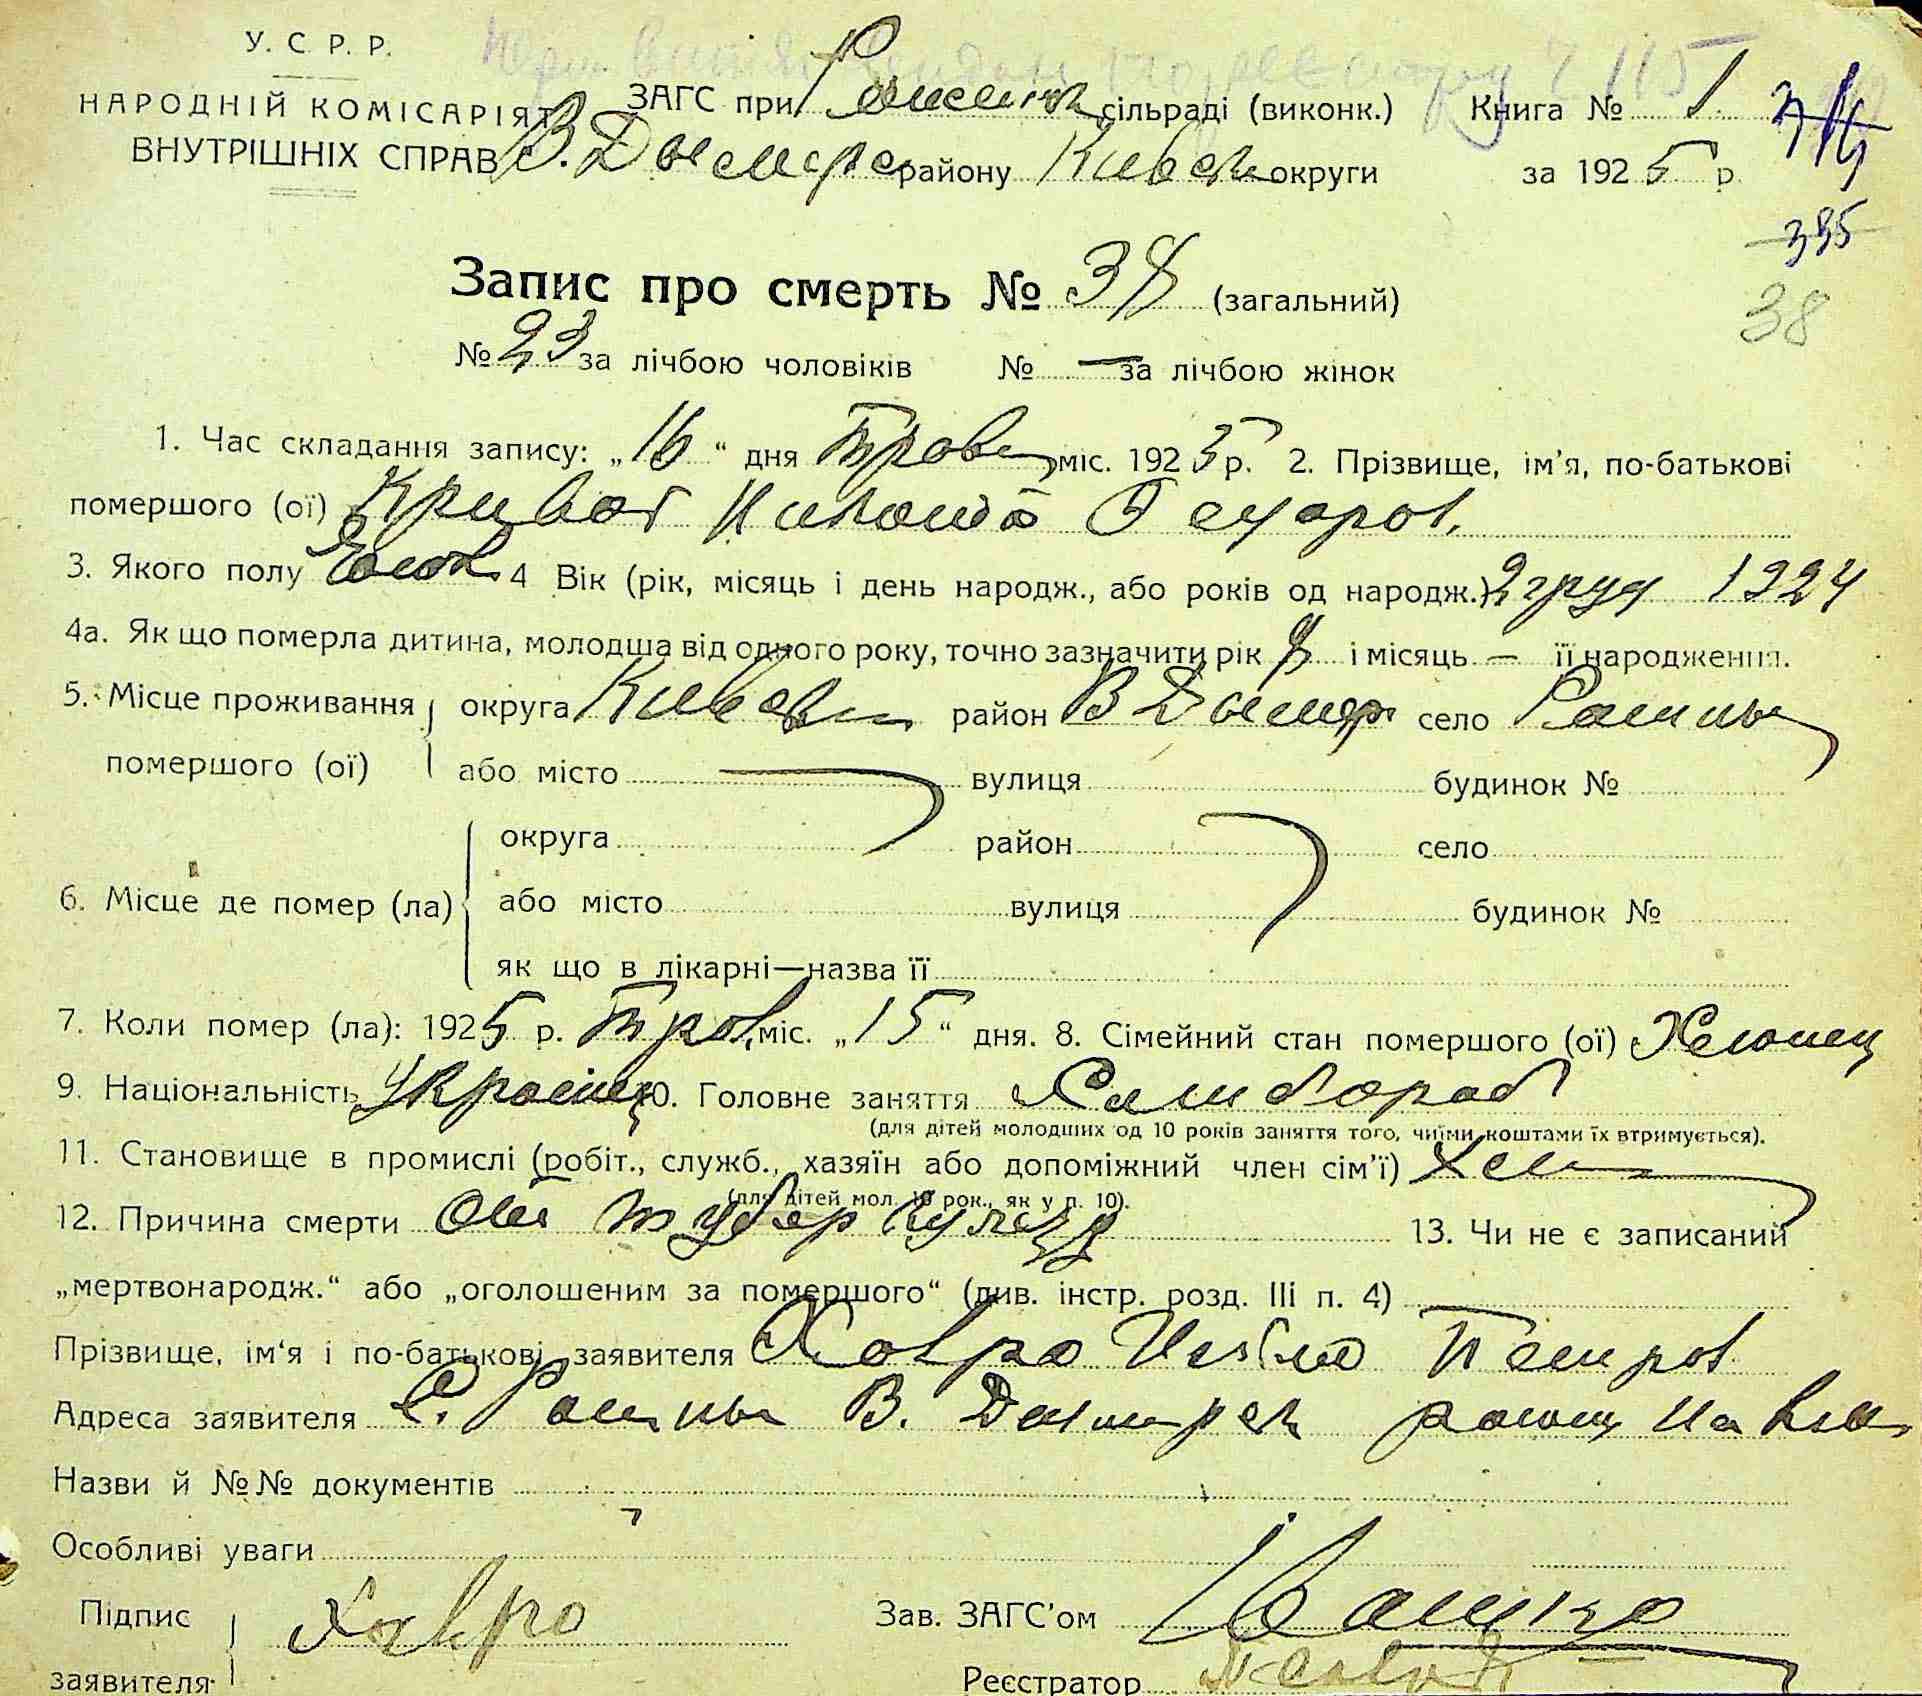 У. С. Р. Р.
НАРОДНІЙ КОМІСАРІЯТ
ВНУТРІШНІХ СПРАВ
ЗАГС при сільраді (виконк.) Книга № 1
В. Дымерс району Київськ округи за 1925 р.
335
38
Запис про смерть № 38 (загальний)
№ 23 за лічбою чоловіків № — за лічбою жінок
1. Час складання запису: „16“ дня Трав міс. 1925 р. 2. Прізвище, ім'я, по-батькові
помершого (ої)
3. Якого полу 4 Вік (рік, місяць і день народж., або років од народж.) 2 груд 1924
4а. Як що померла дитина, молодша від одного року, точно зазначити рік і місяць — її народження.
5. Місце проживання округа район В Дымер село
помершого (ої) або місто вулиця будинок №
округа район село
6. Місце де помер (ла) або місто вулиця будинок №
як що в лікарні—назва її
7. Коли помер (ла): 1925 р. Трав міс. „15“ дня. 8. Сімейний стан помершого (ої) Хлопец
9. Національність Українец 10. Головне заняття Хлибороб
(для дітей молодших од 10 років заняття того, чиїми коштами їх втримується).
11. Становище в промислі (робіт., служб., хазяїн або допоміжний член сім'ї)
(для дітей мол. 10 рок., як у п. 10).
12. Причина смерти От туберкульоза 13. Чи не є записаний
„мертвонародж.“ або „оголошеним за помершого“ (див. інстр. розд. III п. 4) —
Прізвище, ім'я і по-батькові заявителя Ховро Петров
Адреса заявителя с. В. Дымерск
Назви й №№ документів
Особливі уваги
Підпис Ховро Зав. ЗАГС'ом Івашко
заявителя Реєстратор